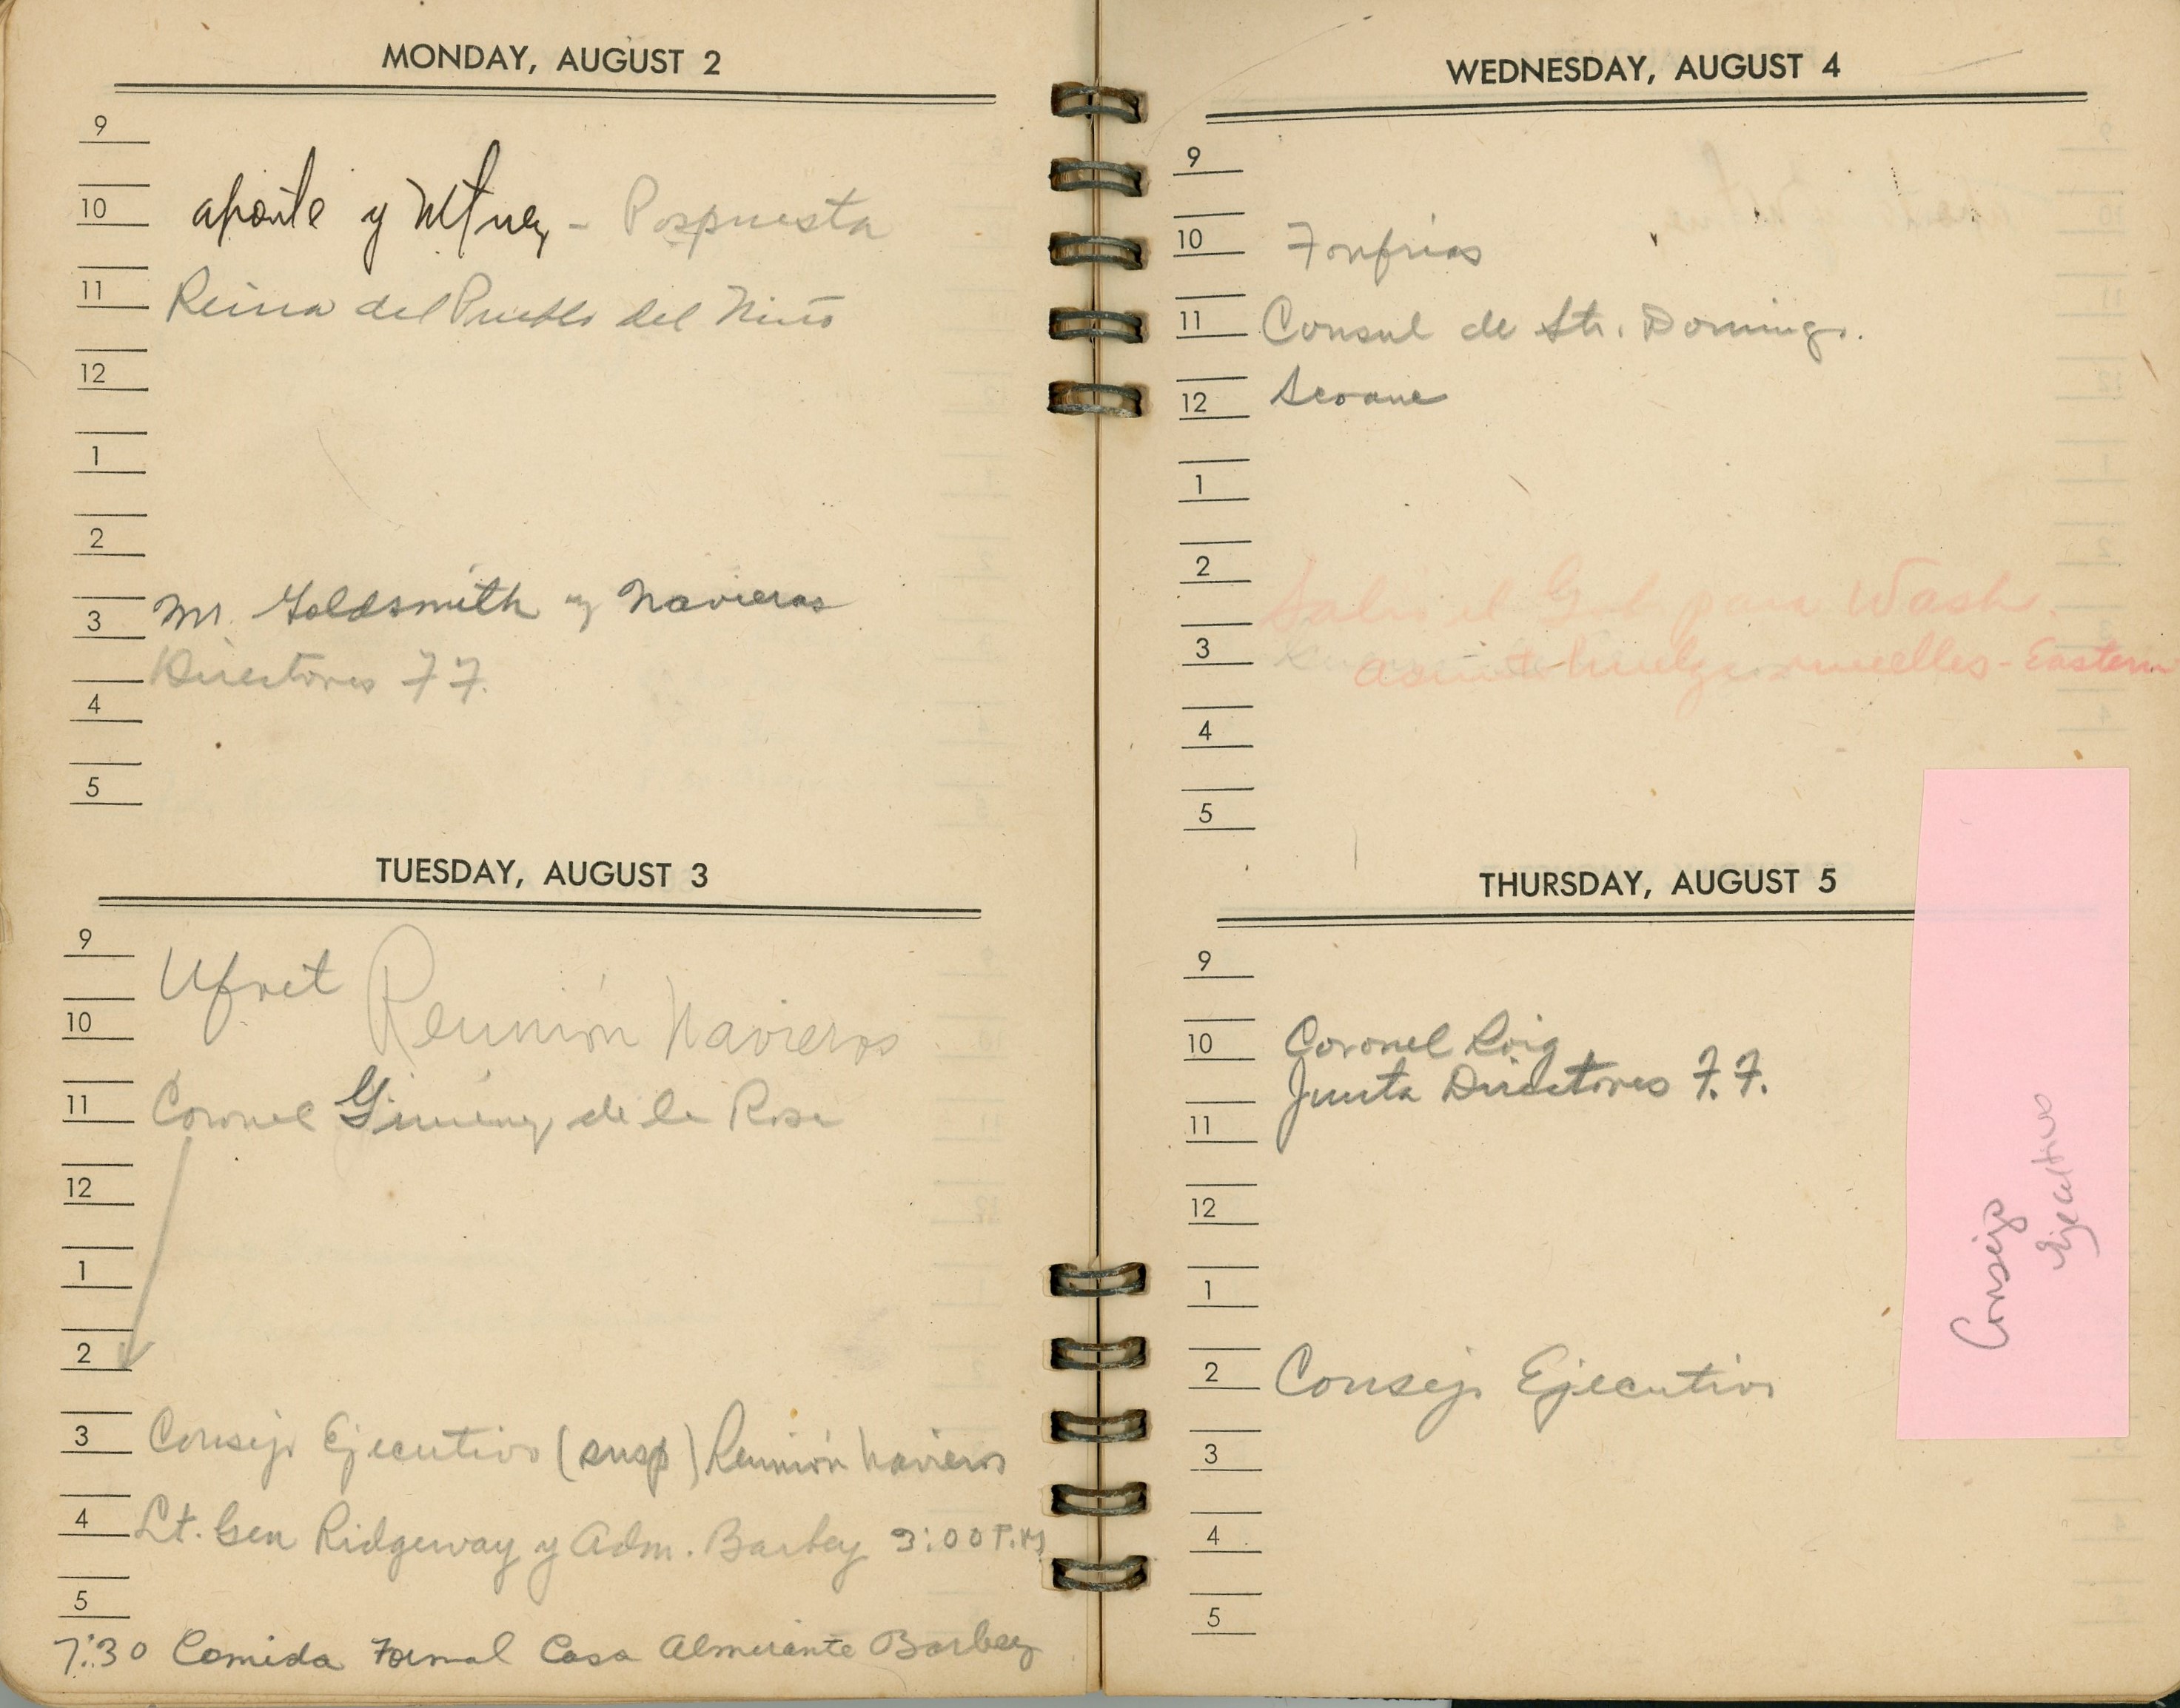 MONDAY, AUGUST 2
9
10 Aponte y Mtnez - Pospuesta
11 Reina del Pueblo del Niño
12
1
2
3 Mr. Goldsmith y Navieras
Directores F F.
4
5
TUESDAY, AUGUST 3
9
Ufret Reunión Navieros
10
11 Coronel Gimenez de la Rosa
12
1
2
3 Consejo Ejecutivo (susp) Reunión Navieros
4 Lt. Gen Ridgeway y Adm. Barbey 3:00 P.M
5
7:30 Comida Formal Casa Almirante Barbey
WEDNESDAY, AUGUST 4
9
10 Fonfrias
11 Consul de Sto. Domingo.
12 Seoane
1
2
Salio el Gob para Wash.
3
asunto huelga muelles - Eastern
4
5
THURSDAY, AUGUST 5
9
10 Coronel Roig
Junta Directores F. F.
11
12
1
2 Consejo Ejecutivo
3
4
5
Consejo
Ejecutivo